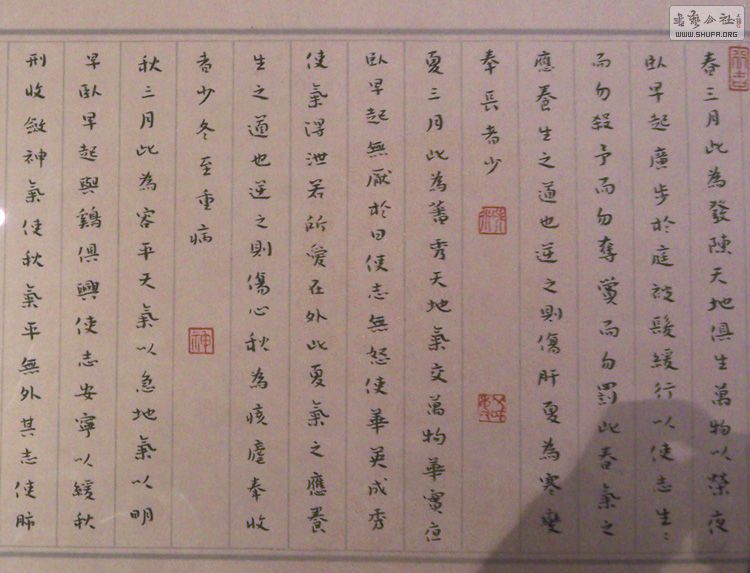 春三月此為發陳天地俱生萬物以榮夜
臥早起廣步於庭被髮緩行以使志生：
而勿殺予而勿奪賞而勿罰此春氣之
應養生之道也逆之則傷肝夏為寒變
奉長者少
夏三月此為蕃秀天地氣交萬物華實夜
臥早起無厭於日使志無怒使華英成秀
使氣得泄若所愛在外此夏氣之應養
生之道也逆之則傷心秋為痎瘧奉收
者少冬至重病
神
秋三月此為容平天氣以急地氣以明
早臥早起與鷄俱興使志安寧以緩秋
刑收斂神氣使秋氣平無外其志使肺
書藝公社
WWW.SHUFA.ORG